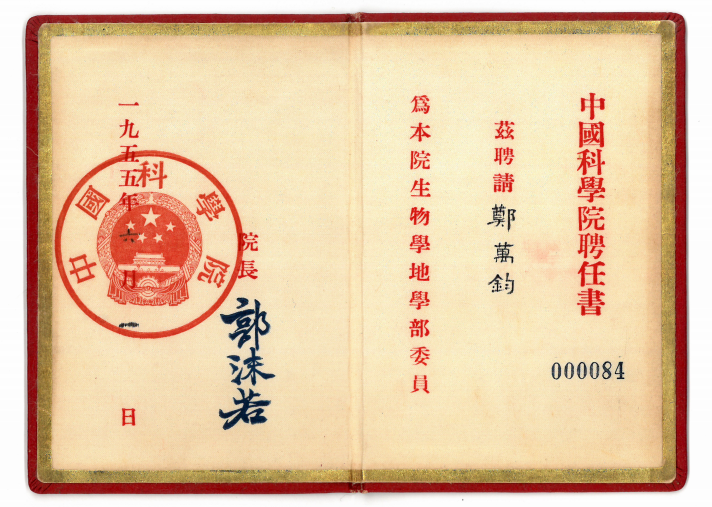 中國科學院聘任書
000084
茲聘請鄭萬鈞
為本院生物學地學部委員
院長 郭沫若
一九五五年六月一日
中國科學院